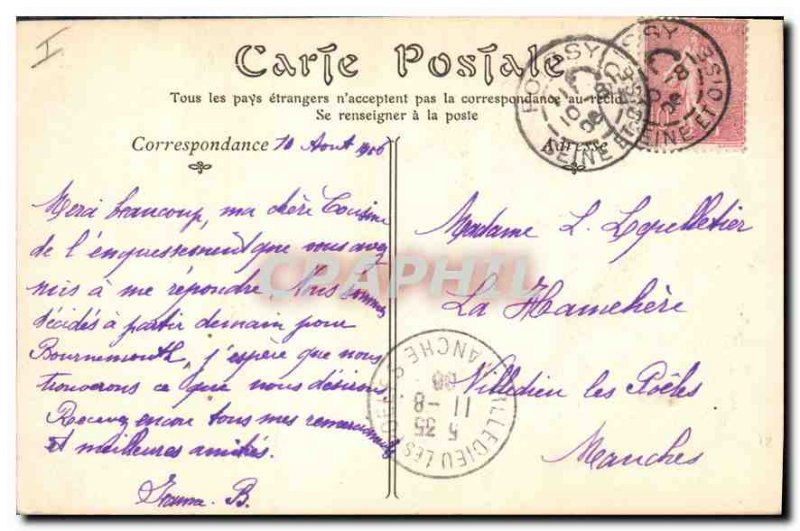 I
Carte Postale
Tous les pays étrangers n'acceptent pas la correspondance au recto
Se renseigner à la poste
Correspondance 10 Aout 1906
Adresse
Merci beaucoup, ma chère Cousine
de l'empressement que vous avez
mis à me répondre. Nous sommes
décidés à partir demain pour
Bournemouth, j'espère que nous
trouverons ce que nous désirons
Recevez encore tous mes remerciements
et meilleures amitiés.
B.
Madame L. Lepelletier
La Hamelière
Villedieu les Poëles
Manches
POISSY
SEINE ET OISE
POISSY
SEINE ET OISE
VILLEDIEU LES POELES MANCHE
5 35
11 - 8
06
CPAPHIL